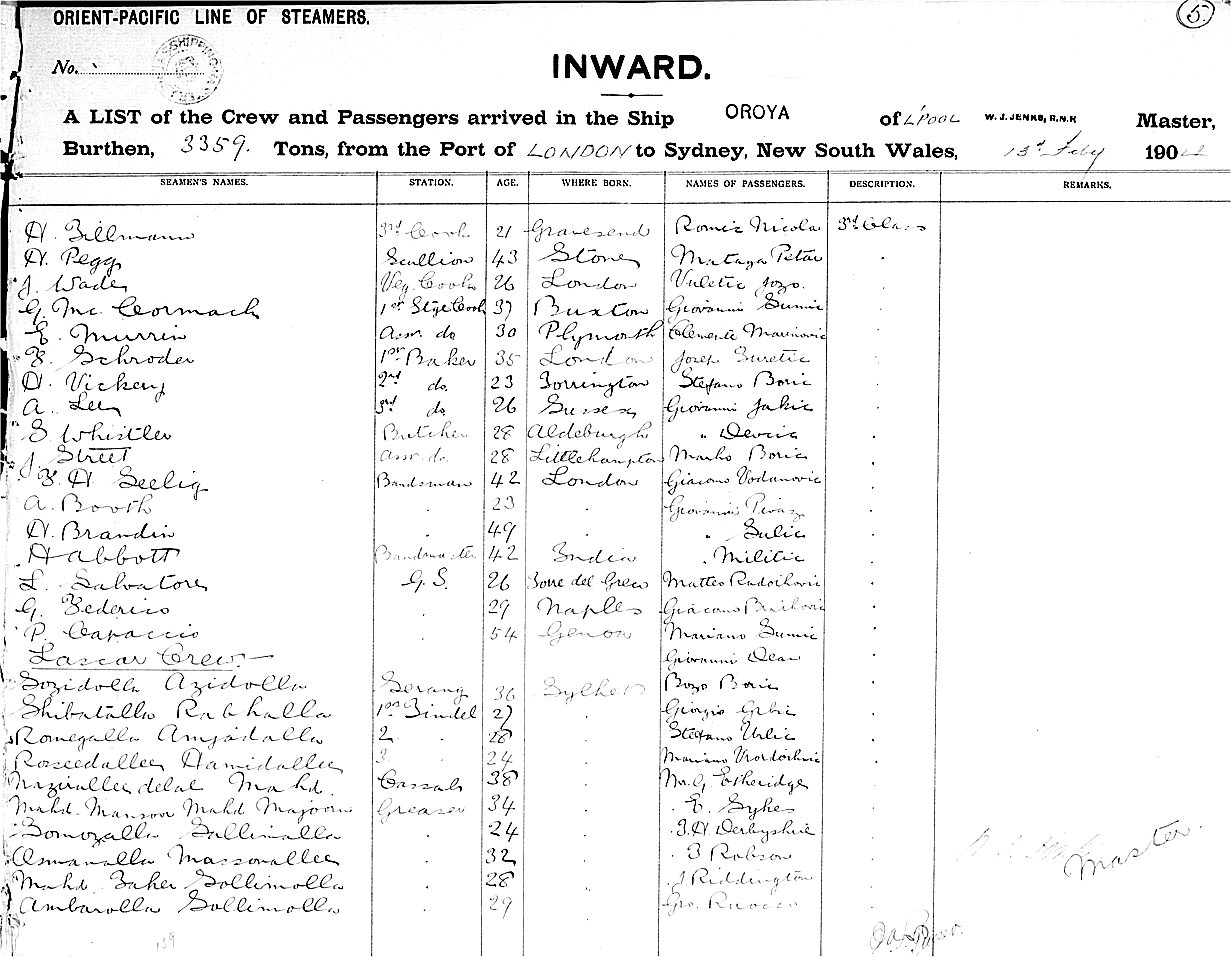 ORIENT-PACIFIC LINE OF STEAMERS.
5.
No.
INWARD.
A LIST of the Crew and Passengers arrived in the Ship OROYA of L'POOL W. J. JENKS, R.N.R Master,
Burthen, 3359. Tons, from the Port of LONDON to Sydney, New South Wales, 13th Feby 1904
SEAMEN'S NAMES. STATION. AGE. WHERE BORN. NAMES OF PASSENGERS. DESCRIPTION. REMARKS.
H. Billmann 3rd Cook 21 Gravesend Nicola 3rd Class
H. Pegg Scullion 43 Stone Mataga Petar
J. Wade Veg. Cook 26 London Vuletic Jozo.
G. Mc Cormack 1st Stge Cook 37 Buxton Giovanni Sumic
E. Murrin Asst. do 30 Plymouth Clemente Marinovic
F. Schroder 1st Baker 35 London Josep Turetic
H. Vickery 2nd do 23 Torrington Stefano Boric
A. Lee 3rd do 26 Sussex Giovanni Jakic
S Whistler Butcher 28 Aldeburgh "
J. Street Asst. do. 28 Littlehampton Marko Boric
F. H Seelig Bandsman 42 London Giacomo Vodanovic
A. Booth . 23 . Giovanni
H. Brandin . 49 . " Sulic
H Abbott Bandmaster 42 India " Militic
L. Salvatore G. S. 26 Torre del Greco Matteo Radoikovic
G. Federico . 29 Naples Giacomo
P. Capaccio . 54 Genoa Mariano Sumic
Lascar Crew.— Giovanni Dean
Sozidolla Azidolla Serang 36 Sylhet Bozo Boric
Shibatalla Rabhalla 1st Tindel 27 . Giorgio Grbic
Romegalla Amjadalla 2 . 28 . Stefano Urlic
Roseedallee Hamidallee 3 . 24 . Mariano
Nazirallee delal Mahd. Cassab 38 . Mr. G. Etheridge
Mahd. Mansoor Mahd Majoom Greaser 34 . E. Sykes
Somozalla Sollimalla . 24 . J. H Derbyshire
Asmanalla Massonallee . 32 . J Robson
Mahd. Baker Sollimolla . 28 . J Riddington
Ambarolla Sollimolla . 29 . Geo. Ruocco
Master.
139